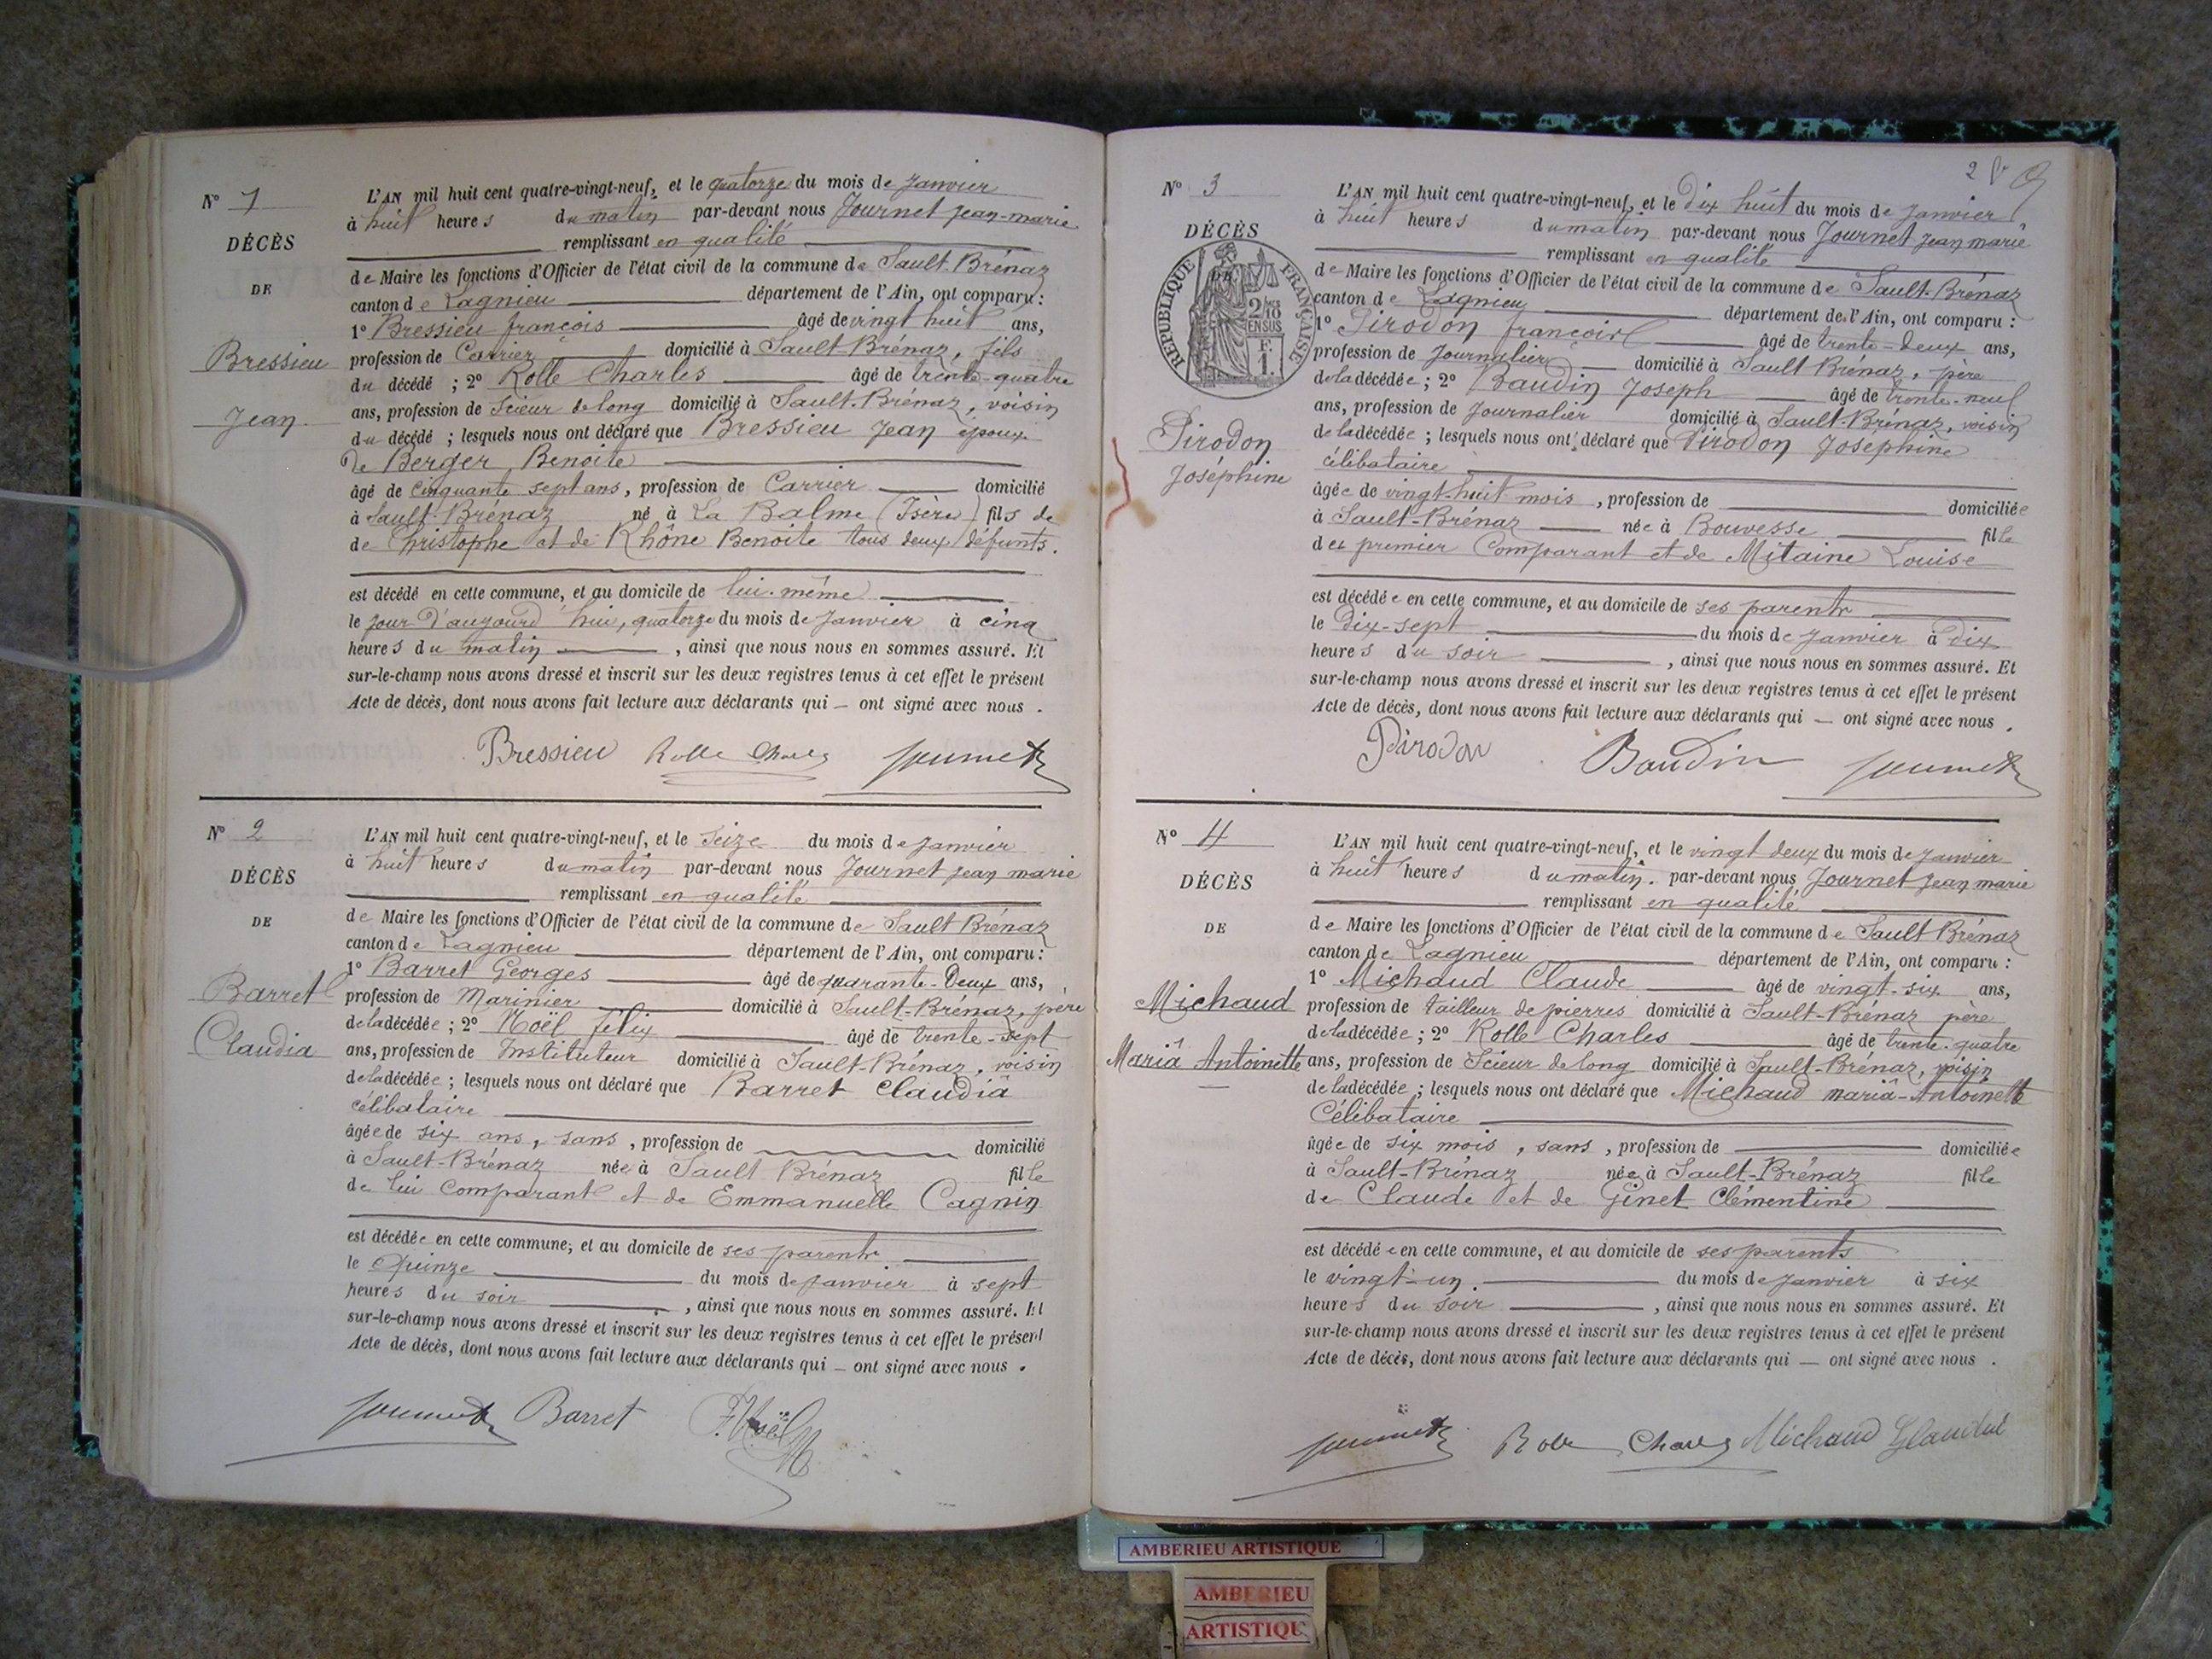 N° 1
DÉCÈS
DE
Bressieu
Jean
L'AN mil huit cent quatre-vingt-neuf, et le quatorze du mois de Janvier
à huit heures du matin par-devant nous Journet Jean-marie
remplissant en qualité
de Maire les fonctions d'Officier de l'état civil de la commune de Sault-Brénaz
canton de Lagnieu département de l'Ain, ont comparu :
1° Bressieu françois âgé de vingt huit ans,
profession de Carrier domicilié à Sault-Brénaz, fils
du décédé ; 2° Rolle Charles âgé de trente-quatre
ans, profession de Scieur de long domicilié à Sault-Brénaz, voisin
du décédé ; lesquels nous ont déclaré que Bressieu Jean époux
de Berger Benoite
âgé de cinquante sept ans, profession de Carrier domicilié
à Sault-Brénaz né à La Balme (Isère) fils de
de Christophe et de Rhône Benoite tous deux défunts.
est décédé en cette commune, et au domicile de lui-même
le jour d'aujourd'hui, quatorze du mois de Janvier à cinq
heures du matin , ainsi que nous nous en sommes assuré. Et
sur-le-champ nous avons dressé et inscrit sur les deux registres tenus à cet effet le présent
Acte de décès, dont nous avons fait lecture aux déclarants qui — ont signé avec nous .
Bressieu Rolle Charles Journet
N° 2
DÉCÈS
DE
Barret
Claudia
L'AN mil huit cent quatre-vingt-neuf, et le Seize du mois de Janvier
à huit heures du matin par-devant nous Journet Jean marie
remplissant en qualité
de Maire les fonctions d'Officier de l'état civil de la commune de Sault Brénaz
canton de Lagnieu département de l'Ain, ont comparu :
1° Barret Georges âgé de quarante-Deux ans,
profession de Marinier domicilié à Sault-Brénaz, père
de la décédée ; 2° Noël félix âgé de trente-sept
ans, profession de Instituteur domicilié à Sault-Brénaz, voisin
de la décédée ; lesquels nous ont déclaré que Barret Claudiâ
célibataire
âgée de six ans, sans, profession de domicilié
à Sault-Brénaz née à Sault Brénaz fille
de lui Comparant et de Emmanuelle Cagnin
est décédée en cette commune, et au domicile de ses parents
le Quinze du mois de Janvier à sept
heures du soir , ainsi que nous nous en sommes assuré. Et
sur-le-champ nous avons dressé et inscrit sur les deux registres tenus à cet effet le présent
Acte de décès, dont nous avons fait lecture aux déclarants qui — ont signé avec nous .
Journet Barret F. Noël
2
N° 3
DÉCÈS
RÉPUBLIQUE FRANÇAISE
2/10 EN SUS
F. 1.
Pirodon
Joséphine
L'AN mil huit cent quatre-vingt-neuf, et le Dix huit du mois de Janvier
à huit heures du matin par-devant nous Journet Jean marie
remplissant en qualité
de Maire les fonctions d'Officier de l'état civil de la commune de Sault-Brénaz
canton de Lagnieu département de l'Ain, ont comparu :
1° Pirodon françois âgé de trente-deux ans,
profession de Journalier domicilié à Sault Brénaz, père
de la décédée ; 2° Baudin Joseph âgé de trente-neuf
ans, profession de Journalier domicilié à Sault-Brénaz, voisin
de la décédée ; lesquels nous ont déclaré que Pirodon Joséphine
célibataire
âgée de vingt-huit mois , profession de domiciliée
à Sault-Brénaz née à Bouvesse fille
du premier Comparant et de Mitaine Louise
est décédée en cette commune, et au domicile de ses parents
le Dix-sept du mois de Janvier à dix
heures du soir , ainsi que nous nous en sommes assuré. Et
sur-le-champ nous avons dressé et inscrit sur les deux registres tenus à cet effet le présent
Acte de décès, dont nous avons fait lecture aux déclarants qui — ont signé avec nous .
Pirodon Baudin Journet
N° 4
DÉCÈS
DE
Michaud
Mariâ Antoinette
L'AN mil huit cent quatre-vingt-neuf, et le vingt deux du mois de Janvier
à huit heures du matin. par-devant nous Journet Jean marie
remplissant en qualité
de Maire les fonctions d'Officier de l'état civil de la commune de Sault Brénaz
canton de Lagnieu département de l'Ain, ont comparu :
1° Michaud Claude âgé de vingt-six ans,
profession de tailleur de pierres domicilié à Sault-Brénaz père
de la décédée ; 2° Rolle Charles âgé de trente-quatre
ans, profession de Scieur de long domicilié à Sault-Brénaz, voisin
de la décédée ; lesquels nous ont déclaré que Michaud mariâ-Antoinette
Célibataire
âgée de six mois, sans, profession de domiciliée
à Sault-Brénaz née à Sault-Brénaz fille
de Claude et de Ginet Clémentine
est décédée en cette commune, et au domicile de ses parents
le vingt-un du mois de Janvier à six
heures du soir , ainsi que nous nous en sommes assuré. Et
sur-le-champ nous avons dressé et inscrit sur les deux registres tenus à cet effet le présent
Acte de décès, dont nous avons fait lecture aux déclarants qui — ont signé avec nous .
Journet Rolle Charles Michaud
AMBERIEU ARTISTIQUE
AMBERIEU
ARTISTIQU